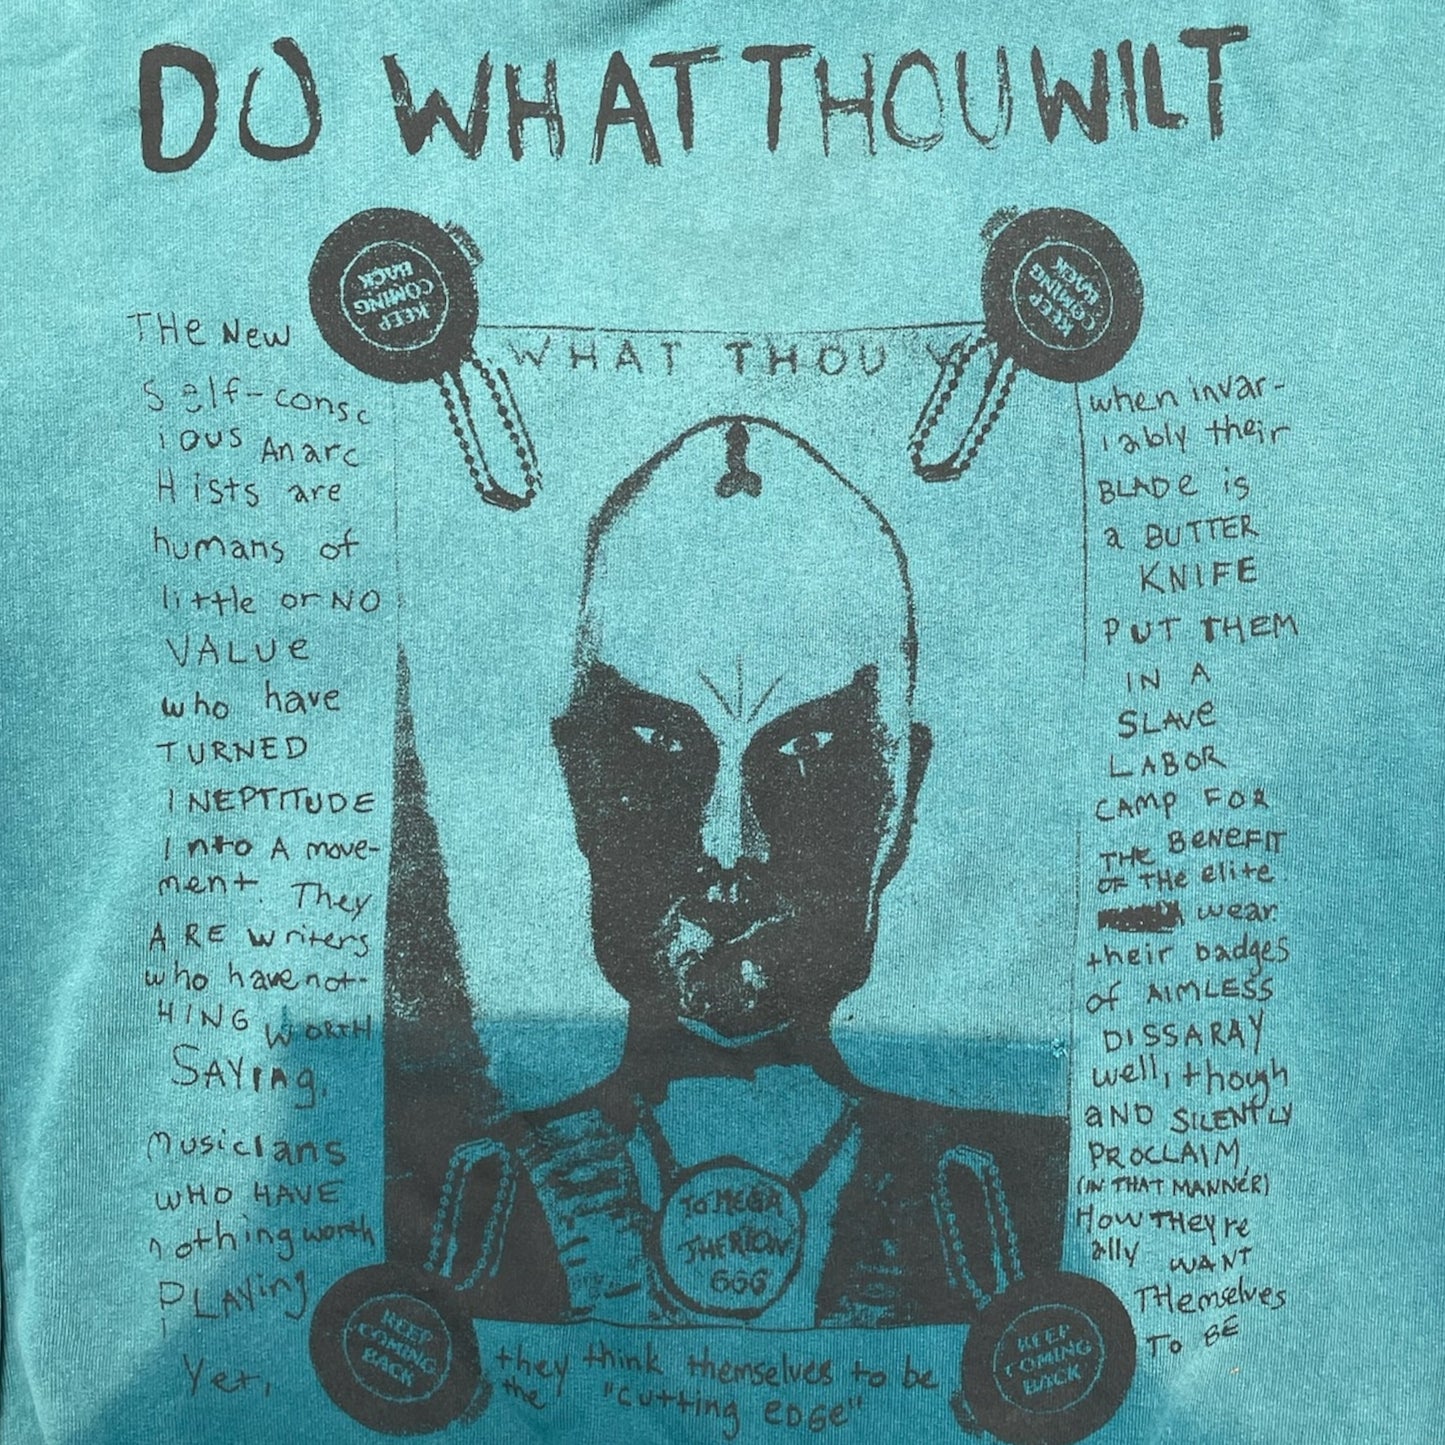 DO WHAT THOU WILT
KEEP
COMING
BACK
KEEP
COMING
BACK
WHAT THOU W
THe New
Self-consc
ious Anarc
Hists are
humans of
little or NO
VALUe
who have
TURNED
INEPTITUDE
Into A move-
ment. They
ARE writers
who have not-
HING WORTH
SAYIng,
musicIans
WHO HAVE
nothing worth
PLAYing
Yet,
they think themselves to be
the "cutting EDGe"
when invar-
iably their
BLADe is
a BUTTER
KNIFE
PUT THEM
IN A
SLAVe
LABOR
CAMP FOR
THE BeNEFIT
OF THe elite
wear
their badges
of AIMLESS
DISSARAY
well, though
aND SILENTLY
PROCLAIM,
(IN THAT MANNER)
How THeyre
ally WANT
THemselves
To BE
TO MEGA
THERION
666
KEEP
COMING
BACK
KEEP
COMING
BACK